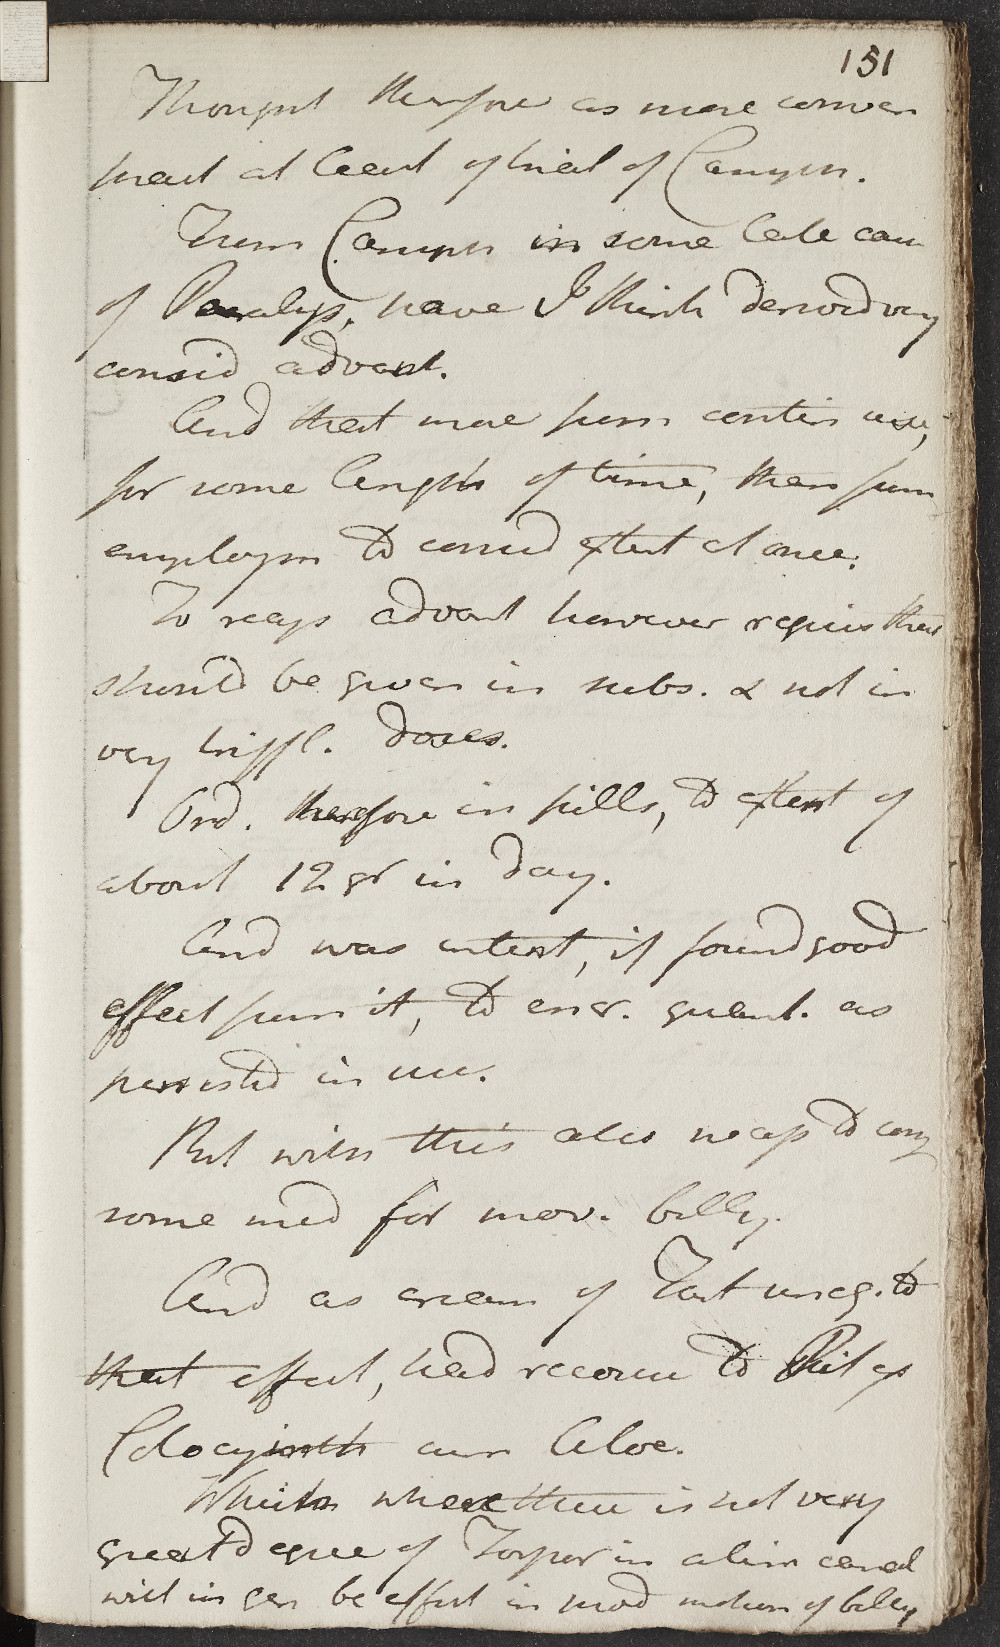 151
Thought therfore as more conven
ient at least of trial of Camph.
From Camph in some late cases
of Paralys, have I think derivd very
consid advant.
And that more from contin use,
for some length of time, than from
employm to consid extent at once.
To reap advant however requis that
should be given in subs. & not in
very triffl. doses.
Ord. therefore in pills, to extent of
about 12 gr in day.
And was intent, if found good
effect from it, to encr. quant. as
persistd in use.
But with this also necess to conj
some med for mov. belly.
And as cream of Tart uneq. to
that effect, had recourse to Pil ex
Colocyinth cum Aloe.
Which where there is not very
great degree of Torpor in alim canal
will in gen be effect in mod motion of belly